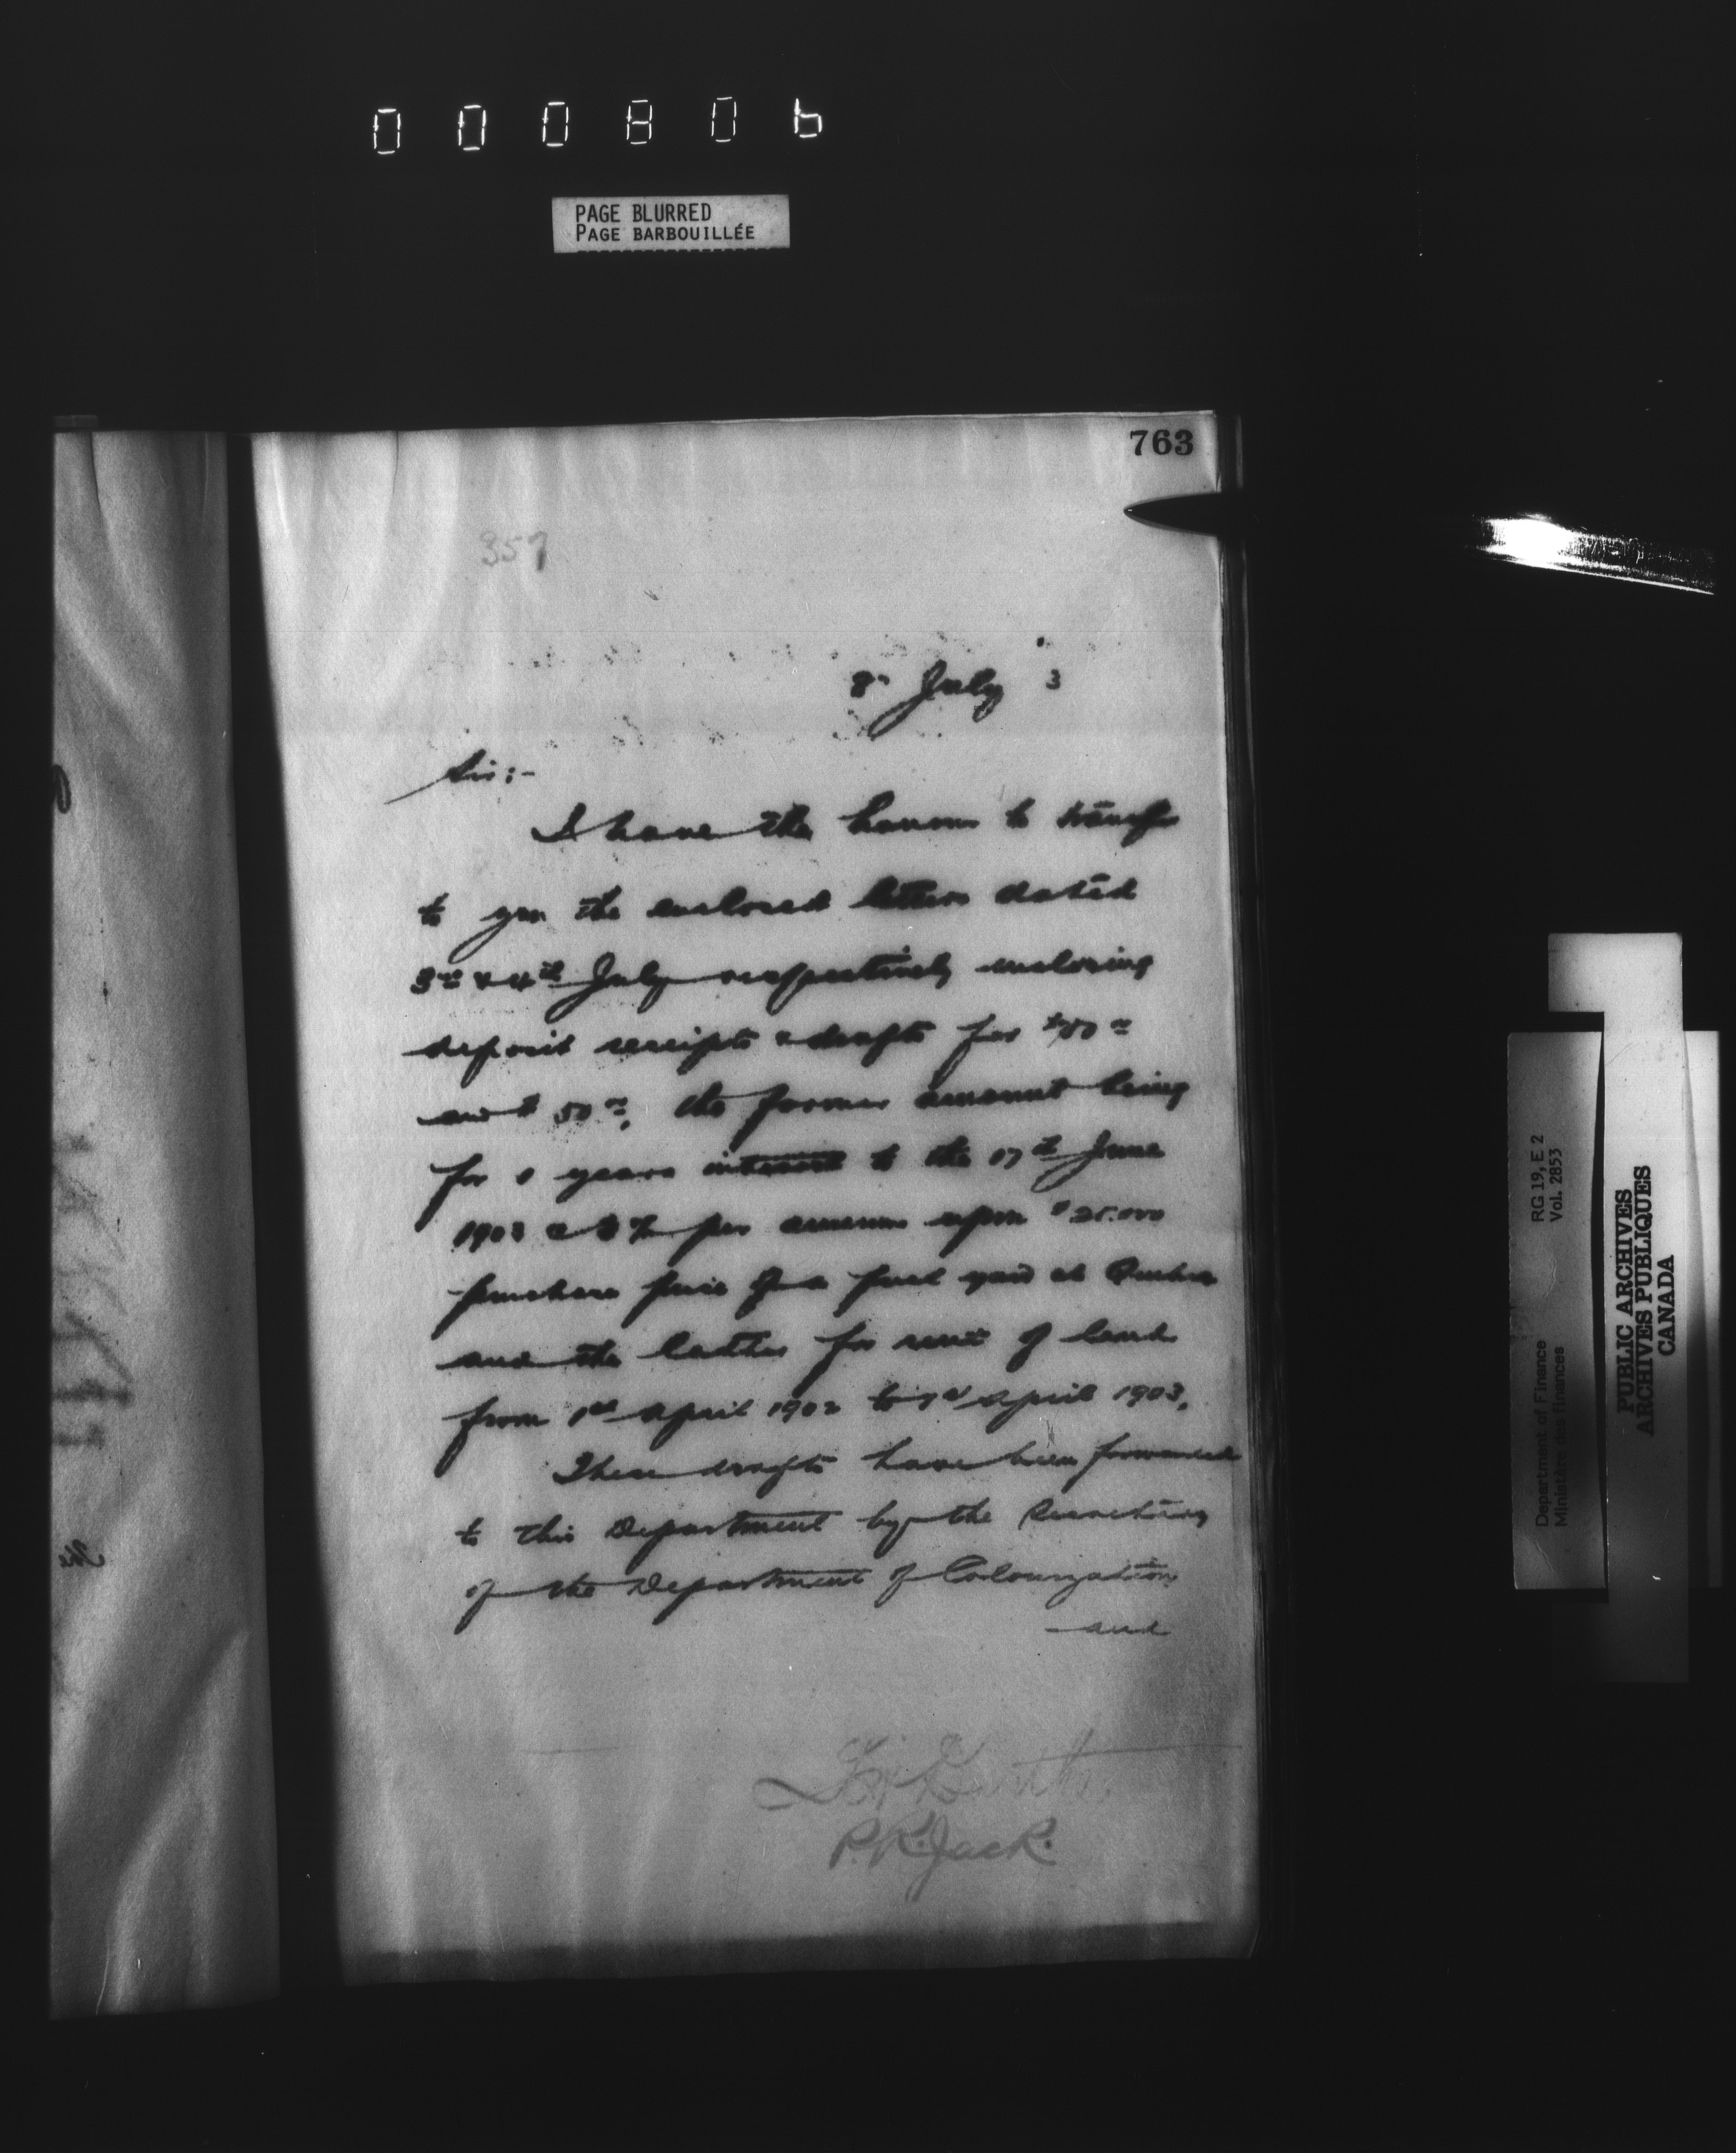 000806
PAGE BLURRED
PAGE BARBOUILLÉE
763
357
8th July 3
Sir:-
I have the honour to transfer
to you the enclosed letters dated
3rd & 4th July respectively enclosing
deposit receipts & drafts for
and $50.00, the former amount being
for 1 years interest to the 17th June
1903 @ 3% per annum upon $25.000
purchase price of a fuel yard at Quebec
and the latter for rent of land
from 1st April 1902 to 1st April 1903.
These drafts have been forwarded
to this Department by the Secretary
of the Department of Colonization
and
P.R. Jack.
The
RG 19, E 2
Vol. 2853
Department of Finance
Ministère des finances
PUBLIC ARCHIVES
ARCHIVES PUBLIQUES
CANADA